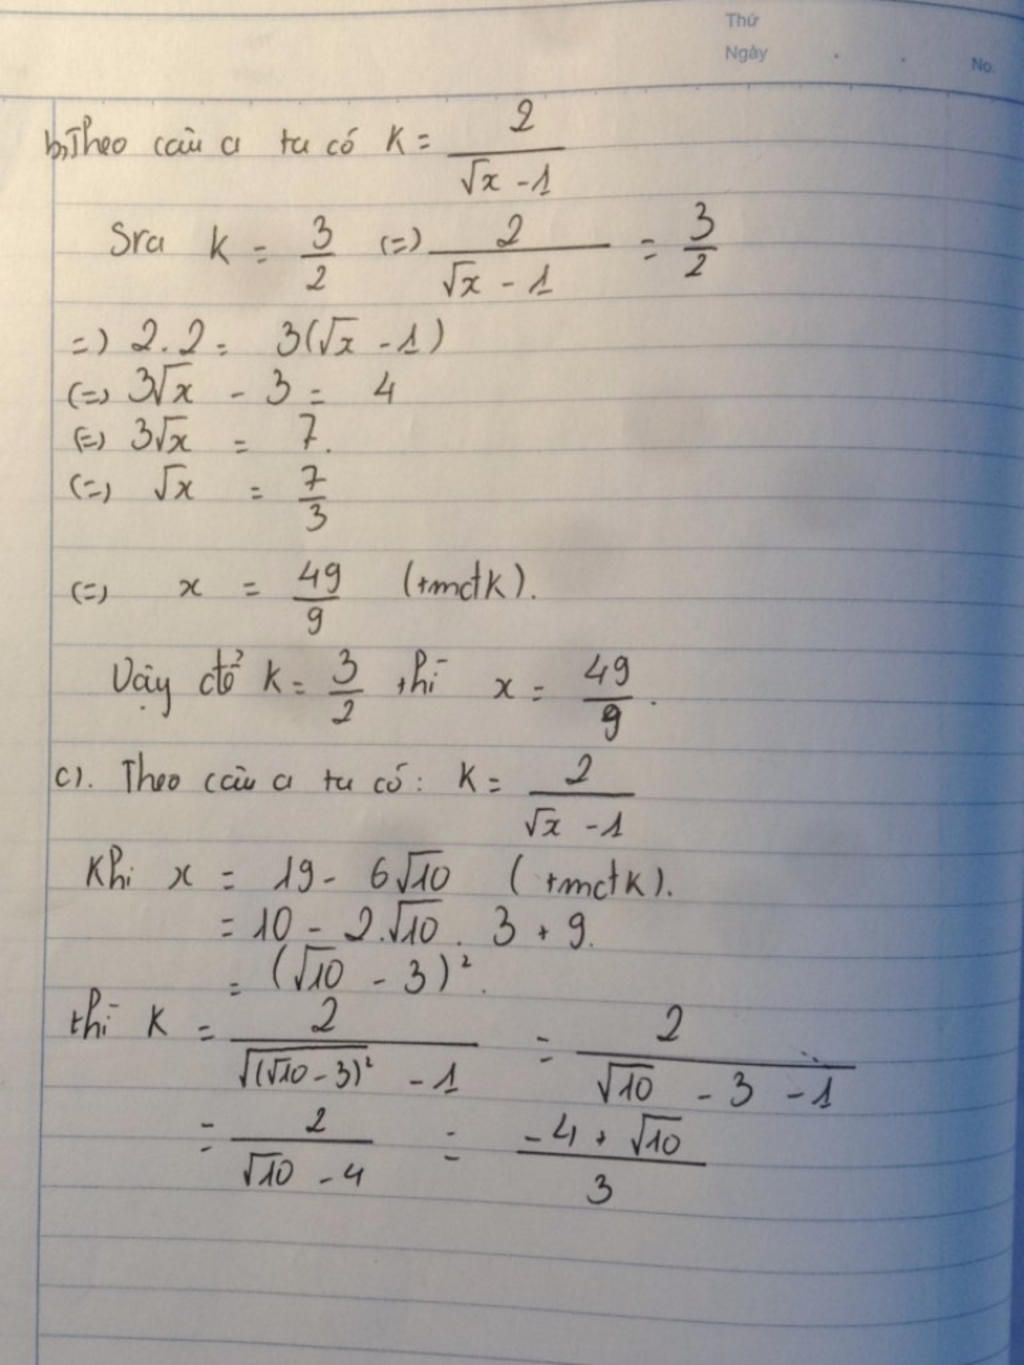 Thứ
Ngày
No.
b, Theo câu a ta có K = \frac{2}{\sqrt{x} - 1}
K = \frac{3}{2} (=) \frac{2}{\sqrt{x} - 1} = \frac{3}{2}
=) 2.2 = 3(√x - 1)
(=) 3√x - 3 = 4
(=) 3√x = 7.
(=) √x = \frac{7}{3}
(=) x = \frac{49}{9} (tmđk).
Vậy để K = \frac{3}{2} thì x = \frac{49}{9}.
c). Theo câu a ta có: K = \frac{2}{\sqrt{x} - 1}
Khi x = 19 - 6√10 (tmđk).
= 10 - 2.√10 . 3 + 9.
= (√10 - 3)².
thì K = \frac{2}{\sqrt{(\sqrt{10} - 3)^2} - 1} = \frac{2}{\sqrt{10} - 3 - 1}
= \frac{2}{\sqrt{10} - 4} = \frac{-4 + \sqrt{10}}{3}